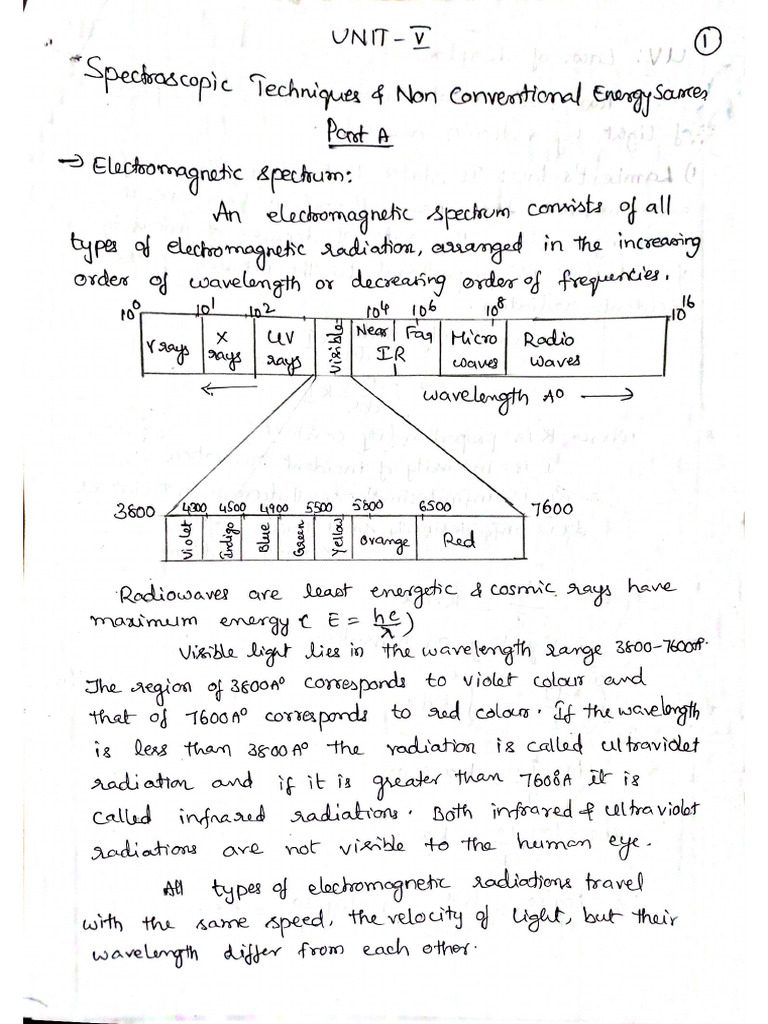 UNIT-V
1
*Spectroscopic Techniques & Non Conventional Energy Sources
Part A
→ Electromagnetic spectrum:
An electromagnetic spectrum consists of all
types of electromagnetic radiation, arranged in the increasing
order of wavelength or decreasing order of frequencies.
10⁰ 10¹ 10² 10⁴ 10⁶ 10⁸ 10¹⁶
γ rays X rays UV rays Visible Near Far IR Micro waves Radio waves
← wavelength A⁰ →
3800 4300 4500 4900 5500 5800 6500 7600
Violet Indigo Blue Green Yellow orange Red
Radiowaves are least energetic & cosmic rays have
maximum energy ( E = hc/λ)
Visible light lies in the wavelength range 3800-7600A⁰.
The region of 3800A⁰ corresponds to violet colour and
that of 7600A⁰ corresponds to red colour. If the wavelength
is less than 3800A⁰ the radiation is called ultraviolet
radiation and if it is greater than 7600A it is
called infrared radiations. Both infrared & ultraviolet
radiations are not visible to the human eye.
All types of electromagnetic radiations travel
with the same speed, the velocity of light, but their
wavelength differ from each other.